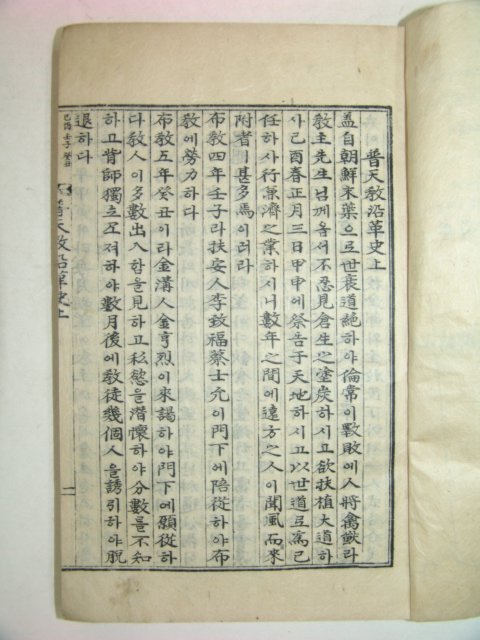 普天教沿革史上
盖自朝鮮末葉으로世衰道絶하야倫常이斁敗에人將禽獸라
教主先生님께옵서不忍見倉生之塗炭하시고欲扶植大道하
사己酉春正月三日甲申에祭告于天地하시고以世道로爲己
任하사行兼濟之業하시니數年之間에遠方之人이聞風而來
附者ㅣ甚多焉이러라
布教四年壬子라扶安人李致福蔡士允이門下에陪從하야布
教에勞力하다
布教五年癸丑이라金溝人金亨烈이來謁하야門下에願從하
다教人이多數出入함을見하고私慾을潛懷하야分數를不知
하고背師獨立코져하야數月後에教徒幾個人을誘引하야脫
退하다
己酉 壬子 癸丑
普天教沿革史上
一